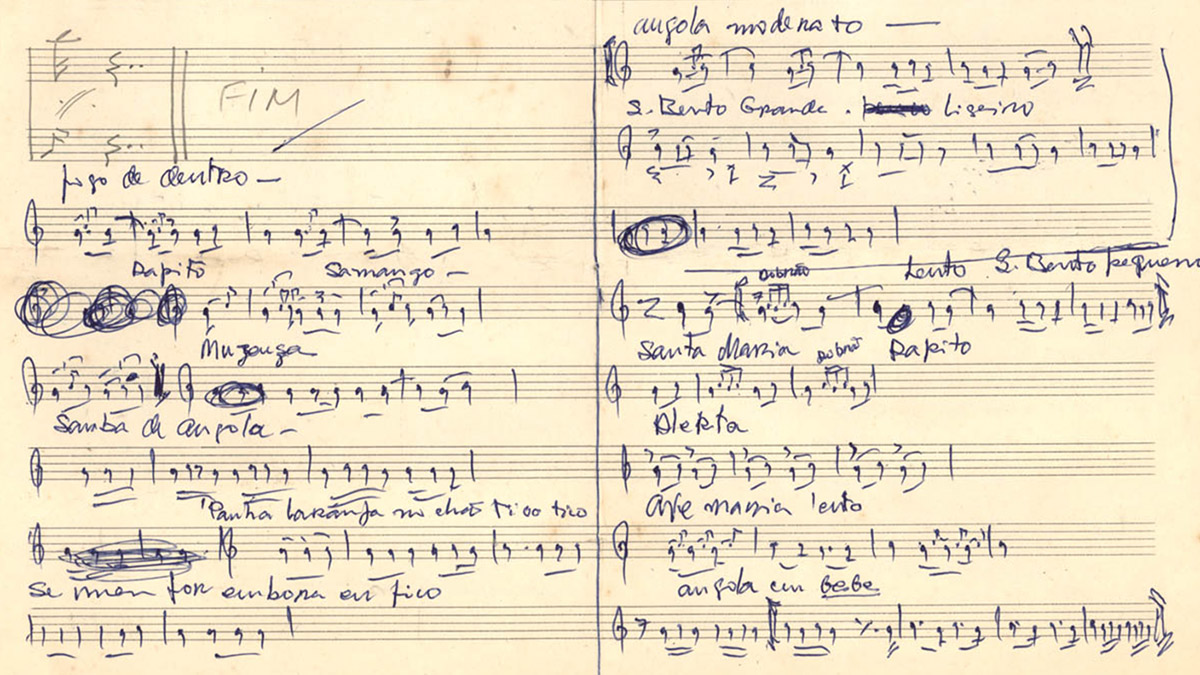 FIM
jogo de dentro —
Papito Samango —
Muzenza
Samba de angola —
Panha laranja no chão tico tico
Se meu for embora eu fico
angola moderato —
S. Bento Grande. Ligeiro
Dobrão Lento S. Bento pequeno
Santa Maria Dobrão Papito
Alerta
Ave maria lento
angola em gege